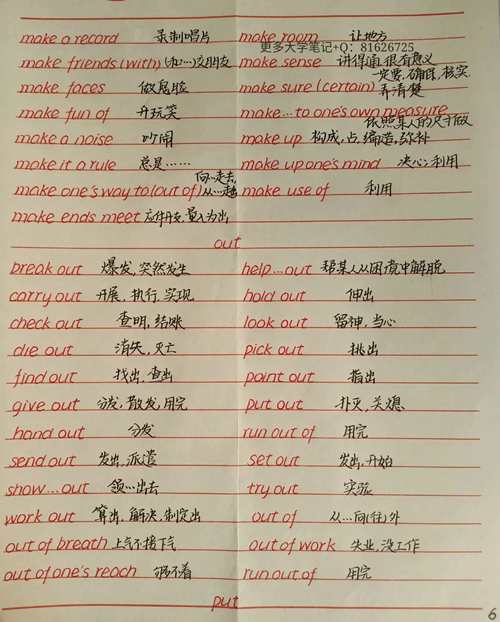 make a record 录制唱片 make room 让地方
更多大学笔记+Q：81626725
make friends (with) (和…)交朋友 make sense 讲得通,很有意义
make faces 做鬼脸 make sure (certain) 一定要,确保,核实 弄清楚
make fun of 开玩笑 make...to one's own measure 依照某人的尺寸做
make a noise 吵闹 make up 构成,占,编造,弥补
make it a rule 总是…… make up one's mind 决心;利用
make one's way to (out of) 向…走去,从…走出 make use of 利用
make ends meet 应付开支,量入为出
out
break out 爆发,突然发生 help...out 帮某人从困境中解脱
carry out 开展,执行,实现 hold out 伸出
check out 查明,结账 look out 留神,当心
die out 消失,灭亡 pick out 挑出
find out 找出,查出 point out 指出
give out 分发,散发,用完 put out 扑灭,关熄
hand out 分发 run out of 用完
send out 发出,派遣 set out 出发,开始
show...out 领…出去 try out 实验
work out 算出,解决,制定出 out of 从…向(往)外
out of breath 上气不接下气 out of work 失业,没工作
out of one's reach 够不着 run out of 用完
put
6